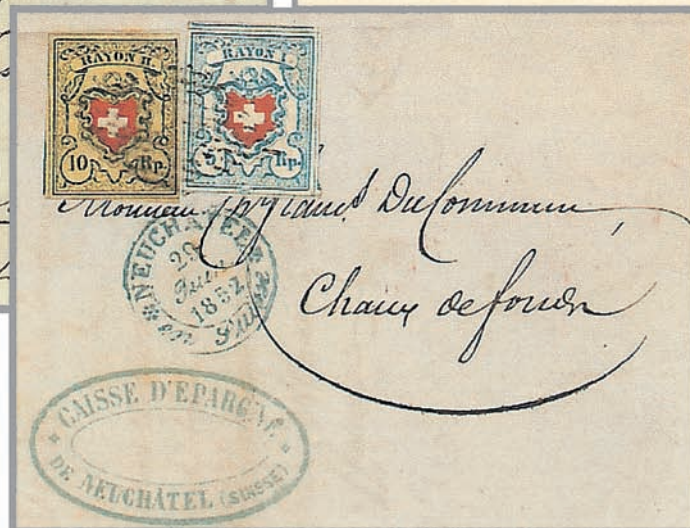 RAYON II.
10 Rp.
RAYON I
5 Rp.
Monsieur DuCommun
Chaux de fonds
NEUCHATEL
29
1852
Suisse
CAISSE D'EPARGNE
DE NEUCHÂTEL (SUISSE)